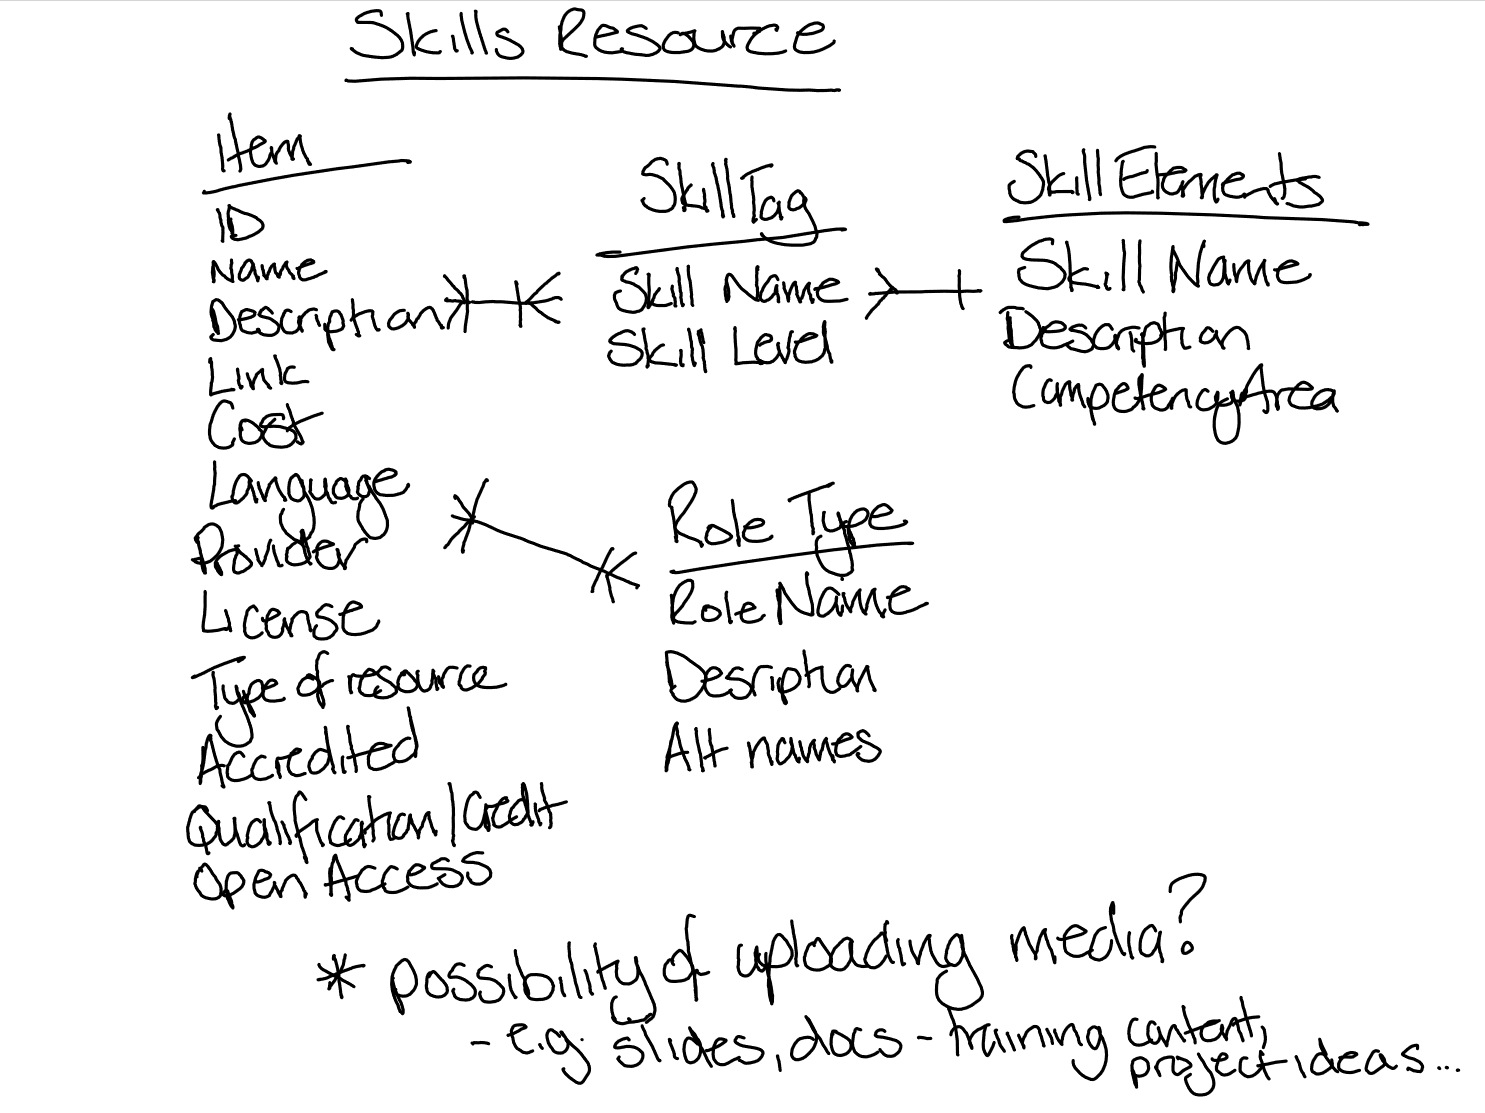 Skills Resource
Item
ID
Name
Description
Link
Cost
Language
Provider
License
Type of resource
Accredited
Qualification/Credit
Open Access
SkillTag
Skill Name
Skill Level
Skill Elements
Skill Name
Description
CompetencyArea
Role Type
Role Name
Desription
Alt names
* possibility of uploading media?
- e.g. slides, docs - training content,
project ideas...